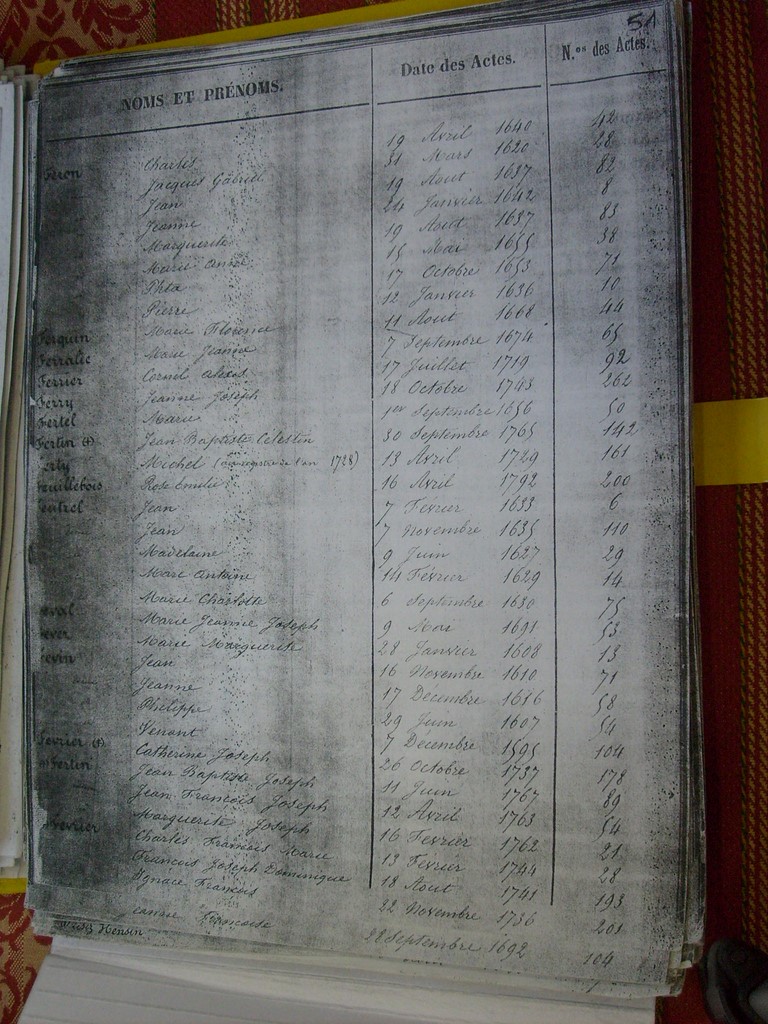 51
NOMS ET PRÉNOMS. Date des Actes. N.os des Actes.
Féron Charles 19 Avril 1640 42
Jacques Gabriel 31 Mars 1620 28
Jean 19 Aout 1637 82
Jeanne 24 Janvier 1642 8
Marguerite 19 Aout 1637 83
Marie Anne 15 Mai 1655 38
Phta 17 Octobre 1653 71
Pierre 12 Janvier 1636 10
Ferquin Marie Florence 11 Aout 1668 44
Ferralie Marie Jeanne 7 Septembre 1674 65
Ferrier Cornil Alexis 17 Juillet 1719 92
Ferry Jeanne Joseph 18 Octobre 1743 262
Fertel Marie 1er Septembre 1656 50
Fertin (+) Jean Baptiste Celestin 30 Septembre 1765 142
erty Michel 1728) 13 Avril 1729 161
euillebois Rose Emilie 16 Avril 1792 200
eutrel Jean 7 Fevrier 1633 6
Jean 7 Novembre 1635 110
Madelaine 9 Juin 1627 29
Marc Antoine 14 Février 1629 14
Marie Charlotte 6 Septembre 1630 75
eval Marie Jeanne Joseph 9 Mai 1691 53
ever Marie Marguerite 28 Janvier 1608 13
evin Jean 16 Novembre 1610 71
Jeanne 17 Decembre 1616 58
Philippe 29 Juin 1607 54
Venant 7 Décembre 1595 104
Fevrier (+) Catherine Joseph 26 Octobre 1737 178
Fertin Jean Baptiste Joseph 11 Juin 1767 89
Jean François Joseph 12 Avril 1763 54
Marguerite Joseph 16 Fevrier 1762 21
Fevrier Charles François Marie 13 Fevrier 1744 28
François Joseph Dominique 18 Aout 1741 193
Ignace François 22 Novembre 1736 201
Jeanne Françoise 28 Septembre 1692 104
Hensin